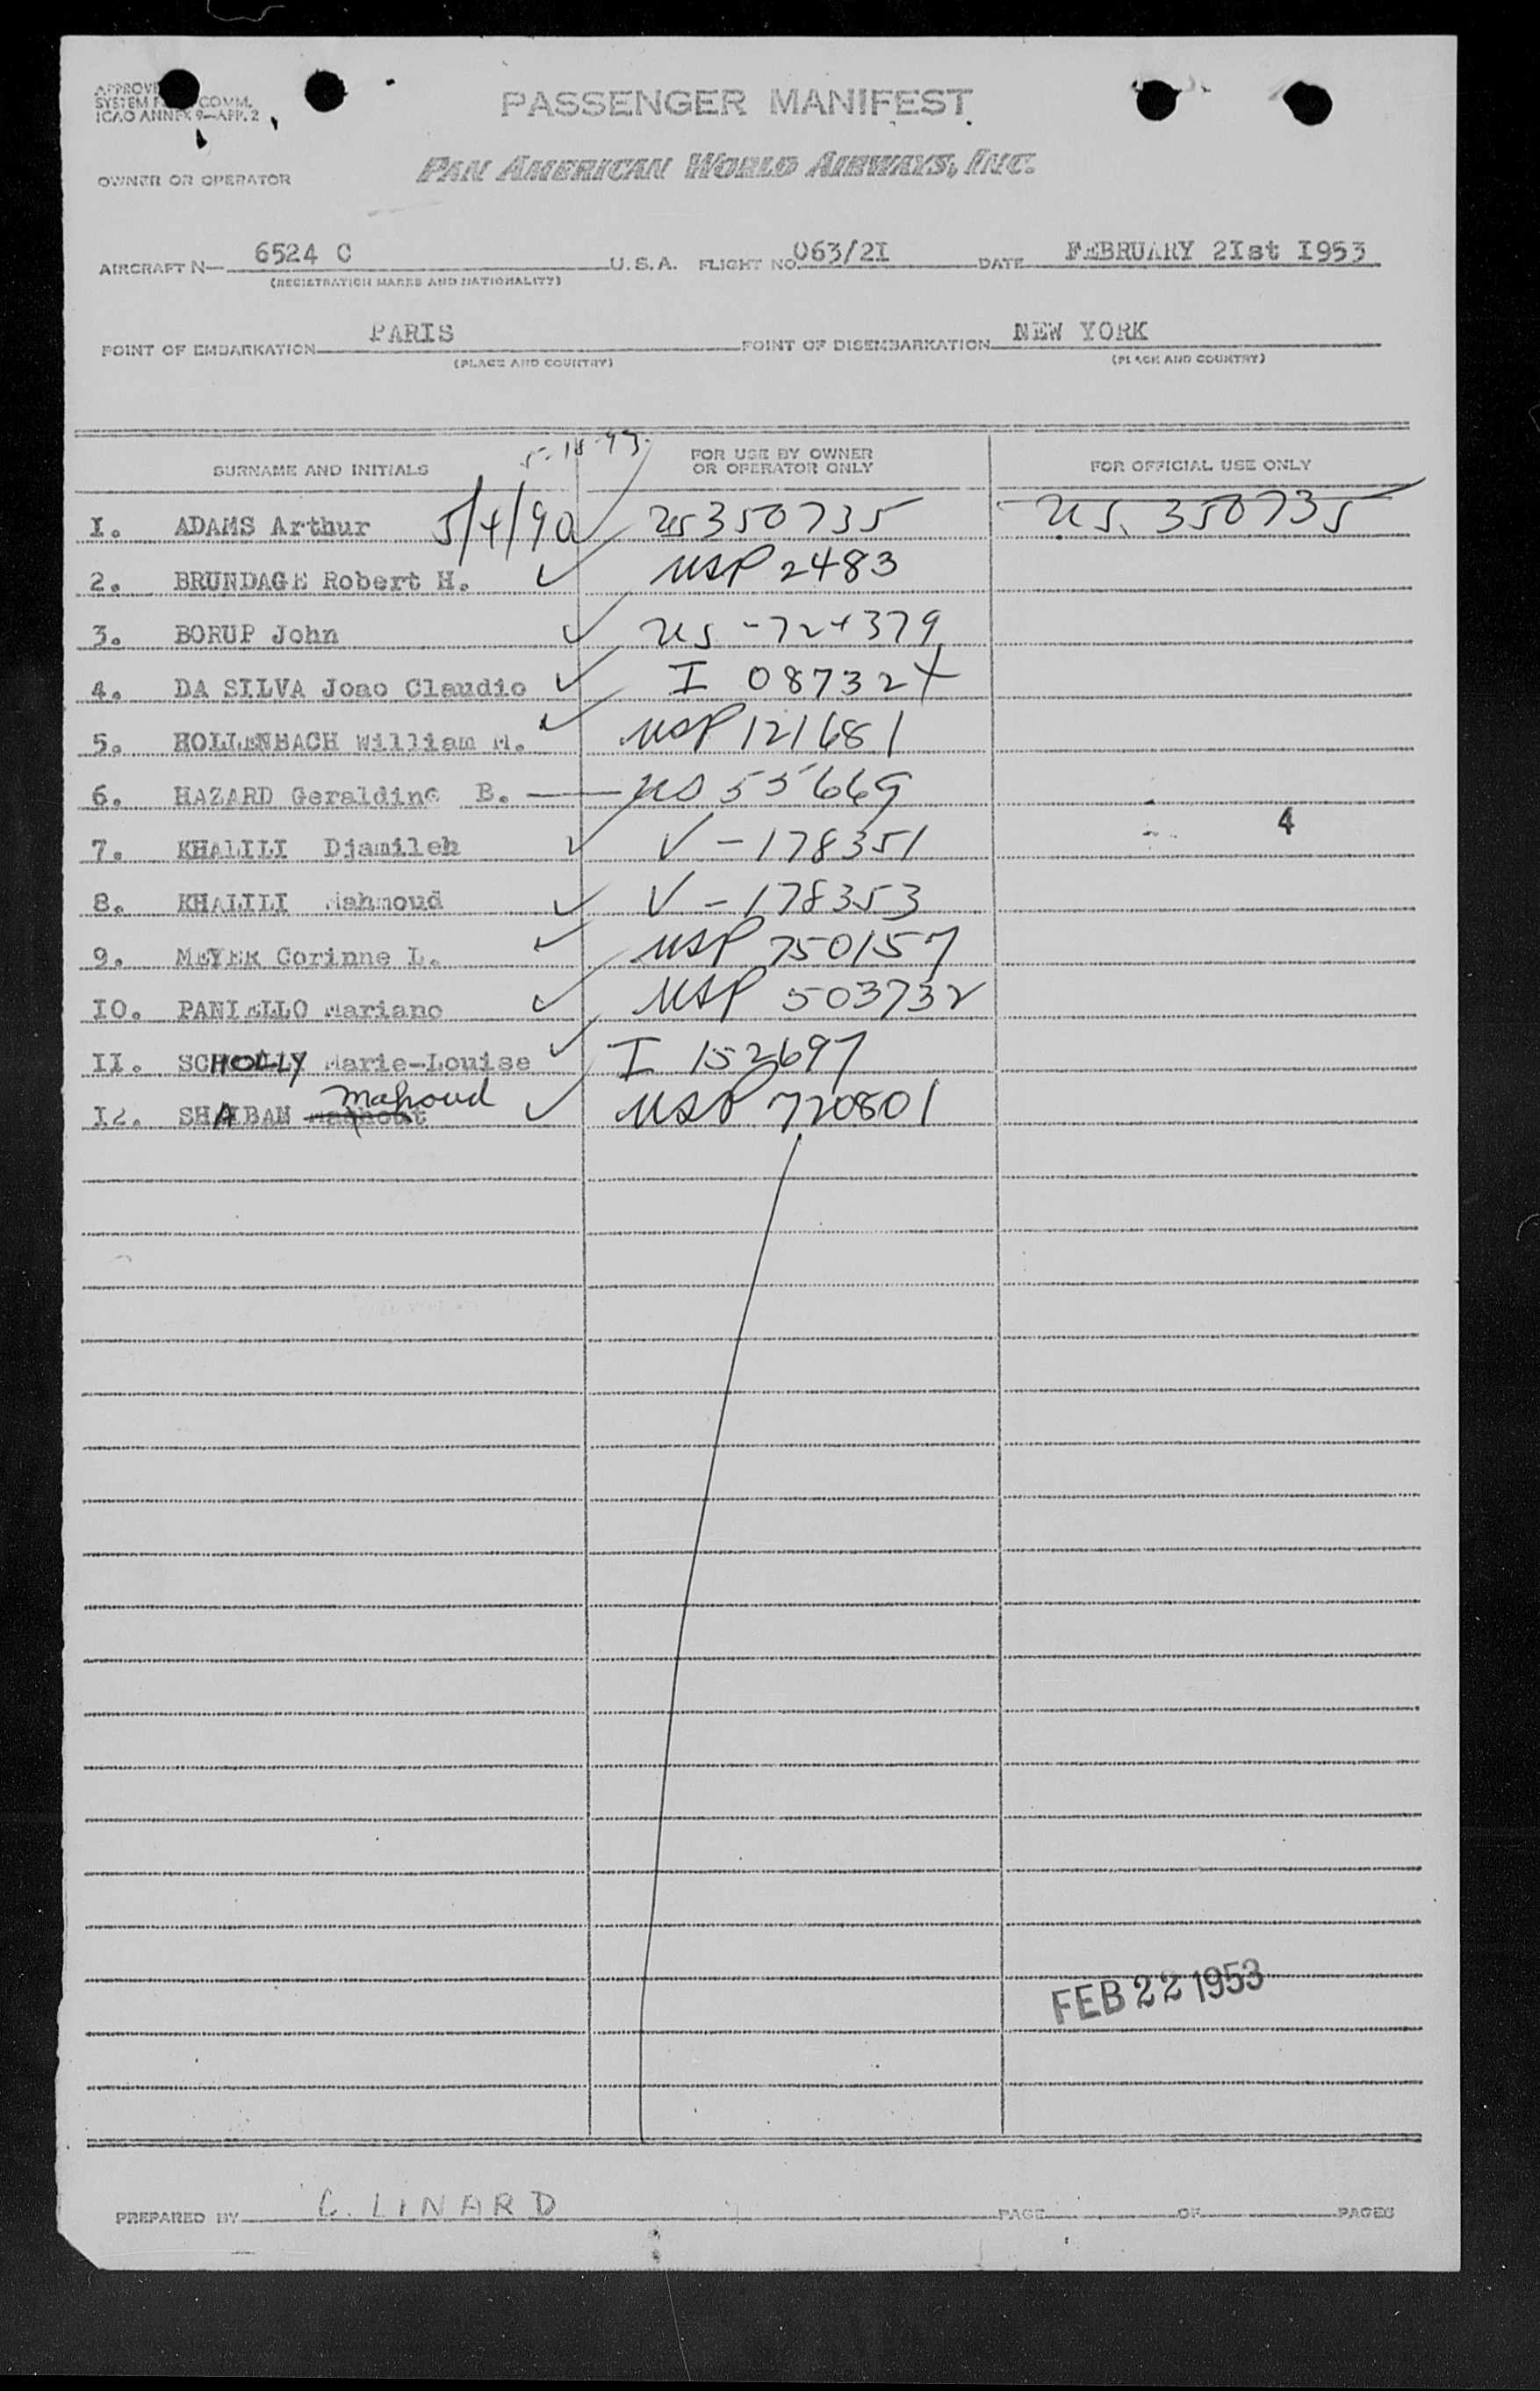 PASSENGER MANIFEST
SYSTEM COMM.
ICAO ANNEX 9—APP. 2
OWNER OR OPERATOR PAN AMERICAN WORLD AIRWAYS, INC.
AIRCRAFT N— 6524 C U.S.A. FLIGHT NO. 063/2I DATE FEBRUARY 2Ist I953
(REGISTRATION MARKS AND NATIONALITY)
POINT OF EMBARKATION PARIS POINT OF DISEMBARKATION NEW YORK
(PLACE AND COUNTRY) (PLACE AND COUNTRY)
SURNAME AND INITIALS FOR USE BY OWNER OR OPERATOR ONLY FOR OFFICIAL USE ONLY
I. ADAMS Arthur 5/4/90 US 350735 US. 350735
2. BRUNDAGE Robert H. ✓ USP 2483
3. BORUP John ✓ US -724379
4. DA SILVA Joao Claudio ✓ I 087324
5. HOLLENBACH William M. ✓ USP 121681
6. HAZARD Geraldine B. — US 55669
7. KHALILI Djamileh ✓ V - 178351 4
8. KHALILI Mahmoud ✓ V - 178353
9. MEYER Corinne L. ✓ USP 750157
IO. PANIELLO Mariano ✓ USP 503732
II. SCHOLLY Marie-Louise ✓ I 152697
I2. SHAIBAN Mahoud ✓ USP 720801
FEB 22 1953
PREPARED BY C. LINARD PAGE OF PAGES